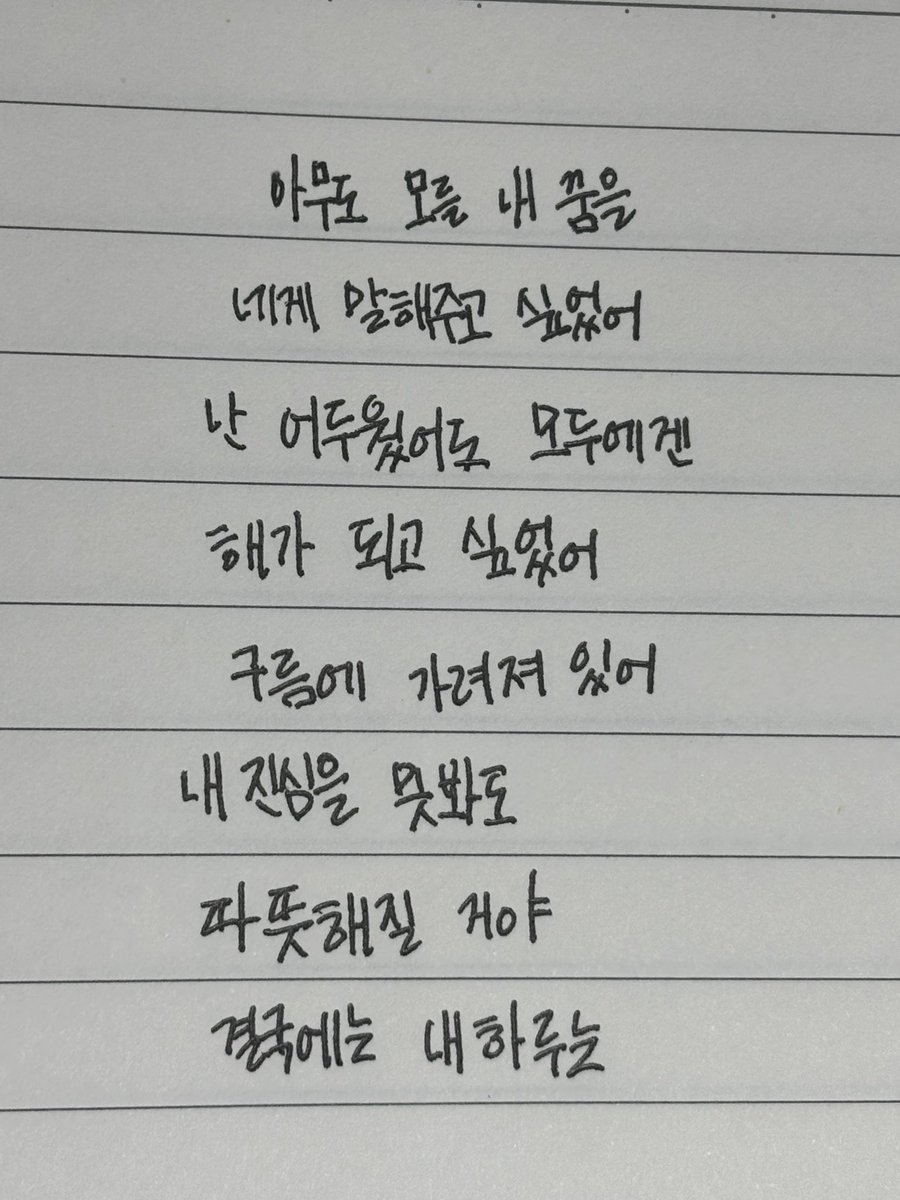 아무도 모를 내 꿈을
네게 말해주고 싶었어
난 어두웠어도 모두에겐
해가 되고 싶었어
구름에 가려져 있어
내 진심을 못봐도
따뜻해질 거야
결국에는 내 하루는